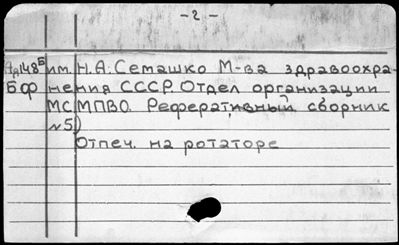 -2-
Ад148Б им. Н.А. Семашко М-ва здравоохра-
Бф нения СССР. Отдел организации
МСМПВО. Реферативный сборник
№5)
Отпеч. на ротаторе